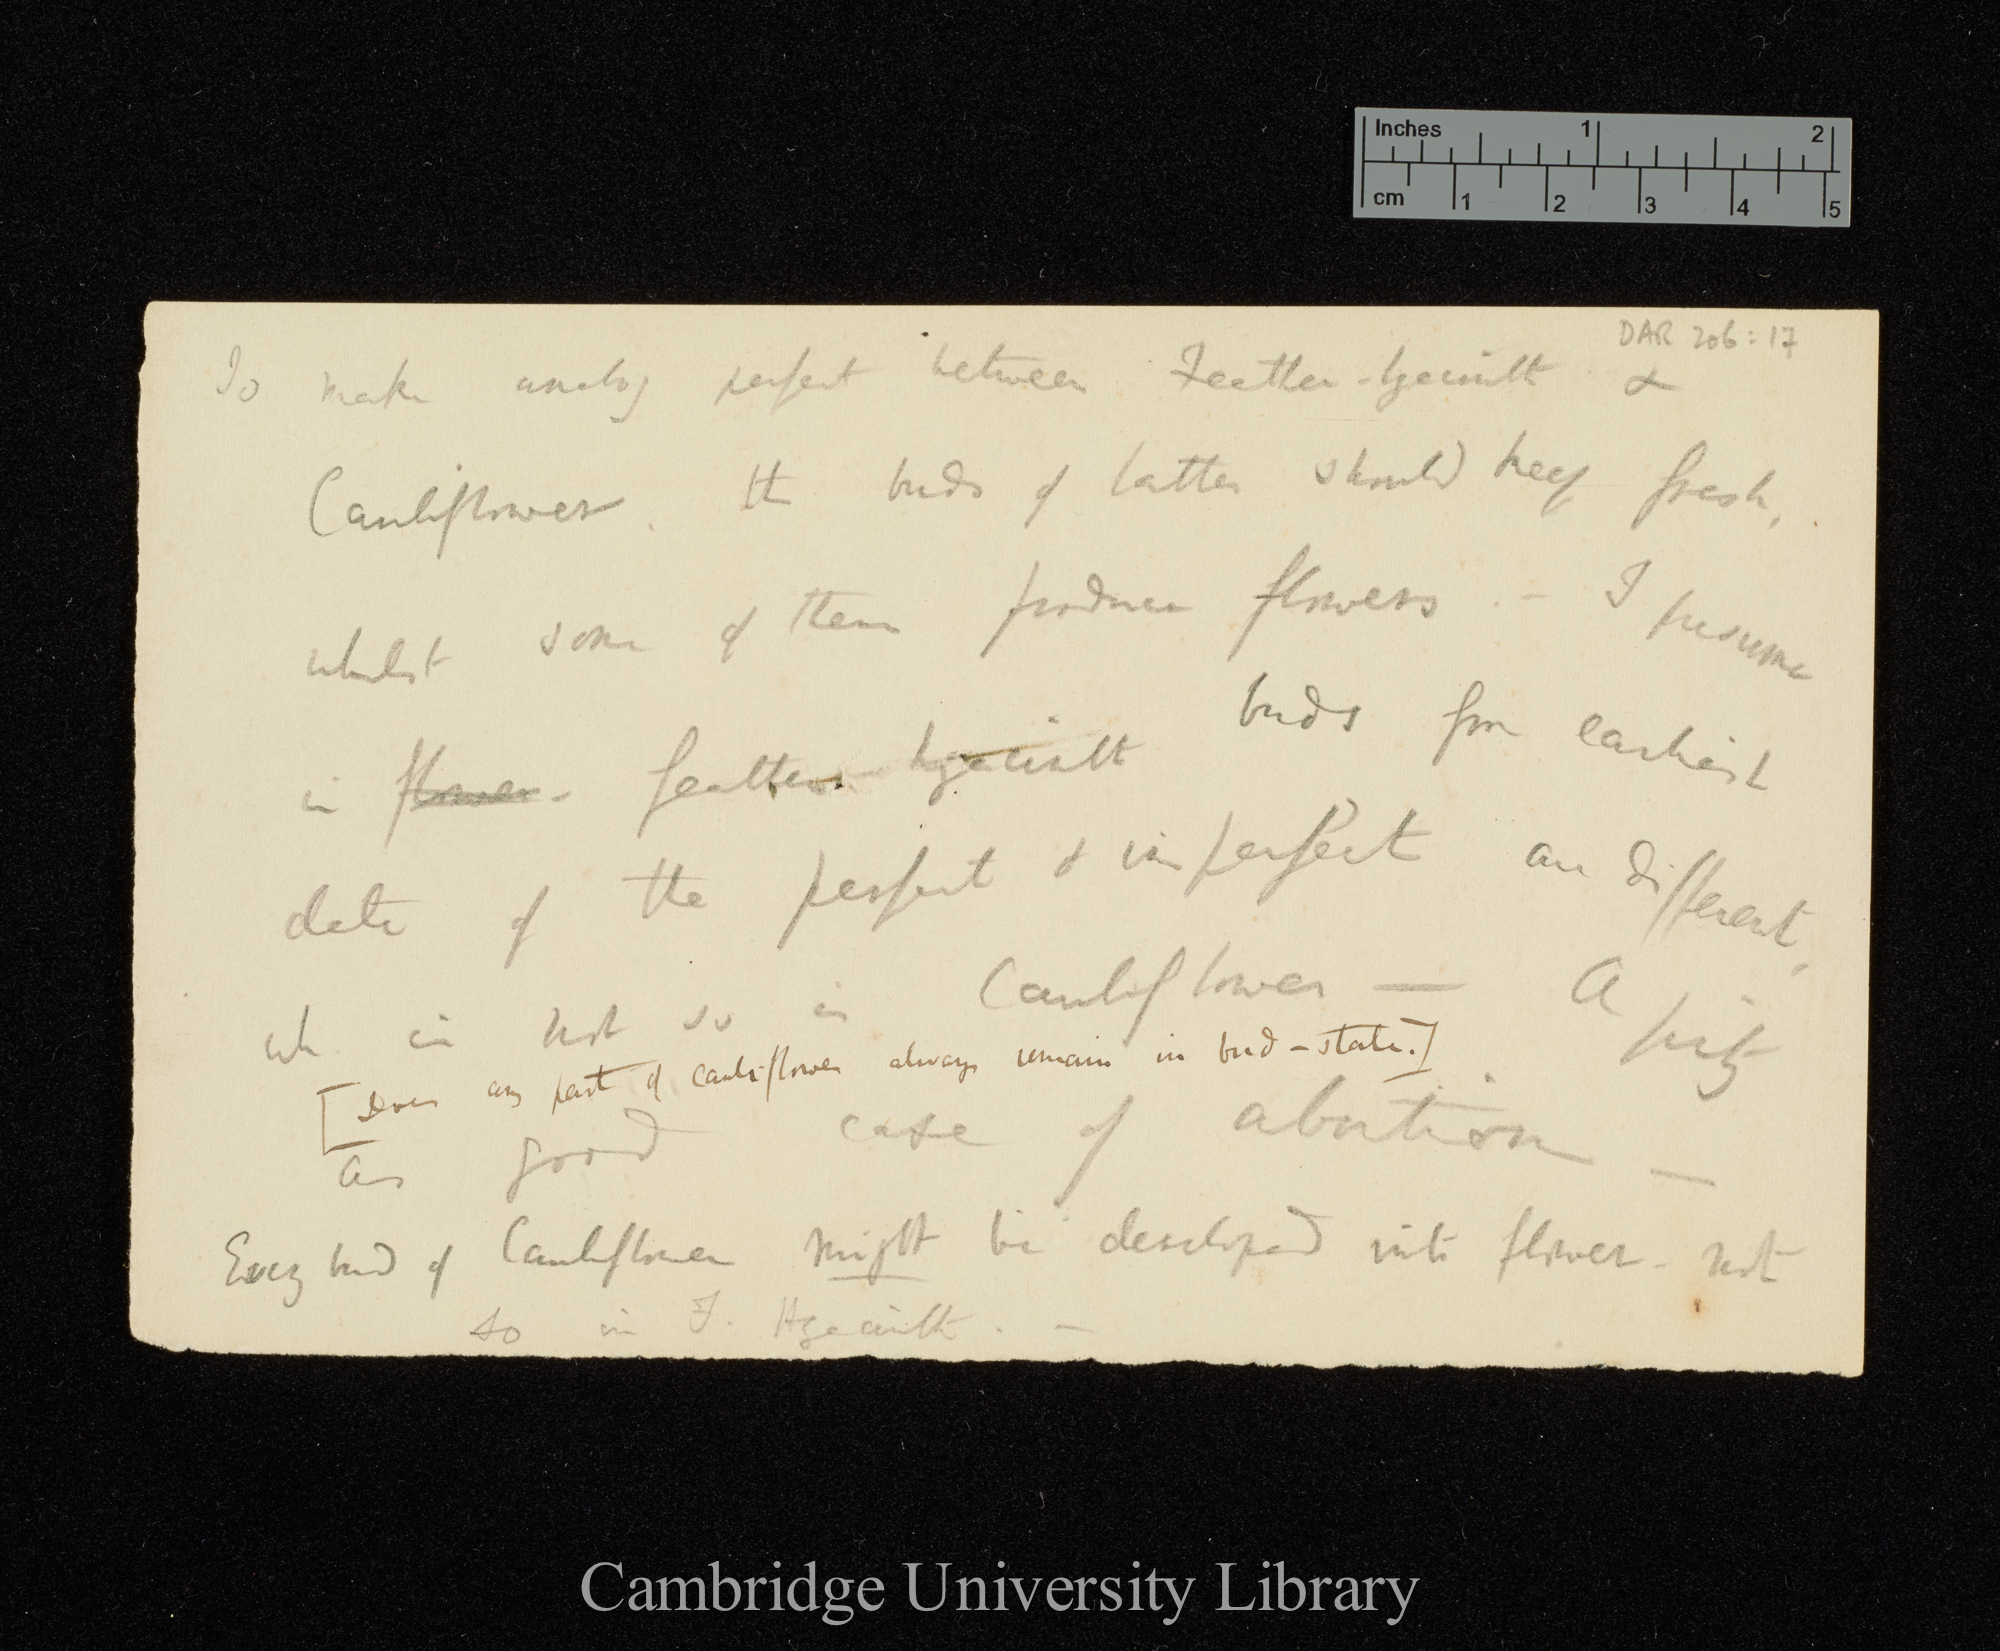 Inches 1 2
cm 1 2 3 4 5
DAR 206:17
To make analogy perfect between Feather-hyacinth &
Cauliflower. the buds of latter should keep fresh,
whilst some of them produce flowers. — I presume
in flower- feather-hyacinth buds from earliest
date of the perfect & imperfect are different,
wh. is not so in Cauliflower — A pity
[Does any part of cauliflower always remain in bud-state.]
as good case of abortion —
Every bud of Cauliflower might be developed into flower- not
so in F. Hyacinth. —
Cambridge University Library